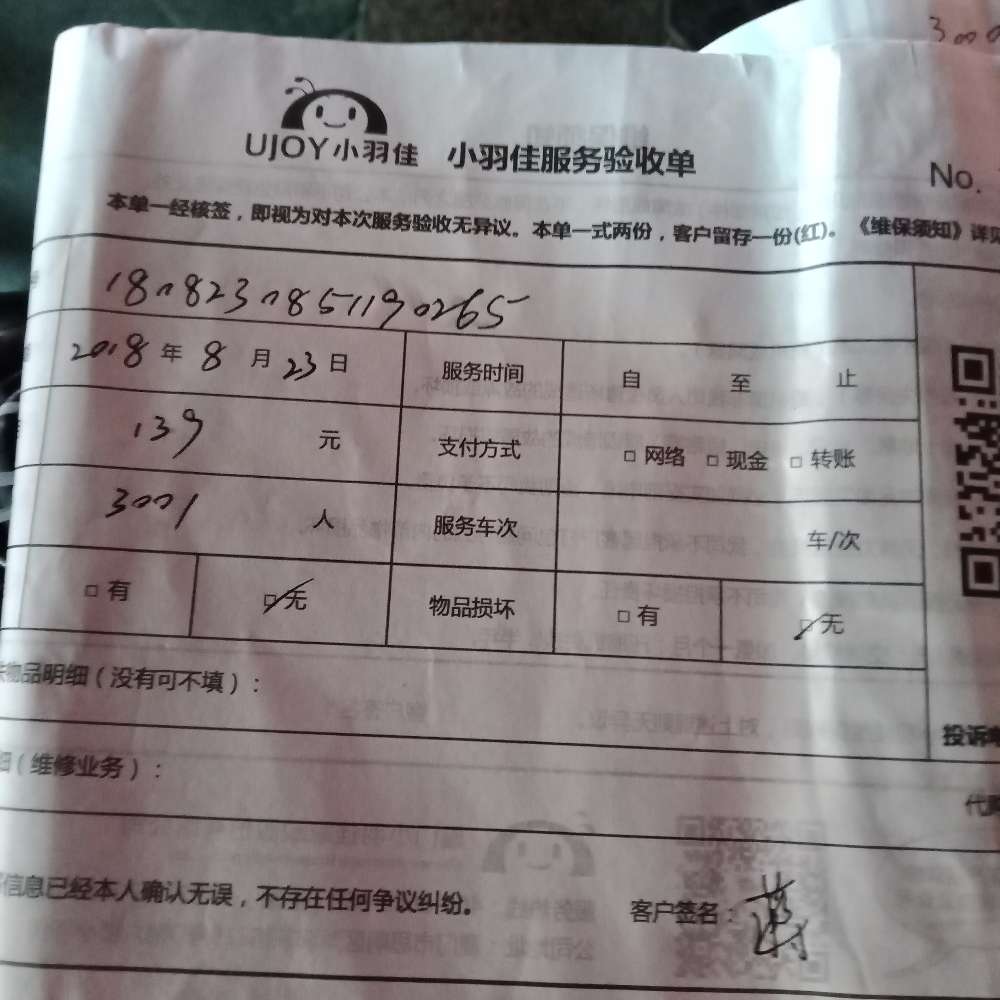 300
UJOY小羽佳 小羽佳服务验收单
No.
本单一经核签，即视为对本次服务验收无异议。本单一式两份，客户留存一份(红)。《维保须知》详见
1808230851190265
2018年8月23日 服务时间 自 至 止
139 元 支付方式 □ 网络 □ 现金 □ 转账
3001 人 服务车次 车/次
□ 有 □ 无 物品损坏 □ 有 □ 无
物品明细（没有可不填）：
投诉
（维修业务）：
信息已经本人确认无误，不存在任何争议纠纷。 客户签名：